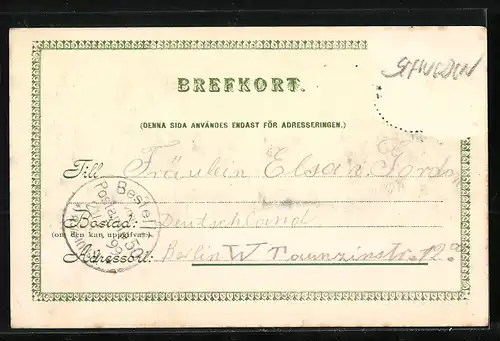 SCHWEDEN
BREFKORT.
(DENNA SIDA ANVÄNDES ENDAST FÖR ADRESSERINGEN.)
Till Fräulein Elsa Jordan
Bostad: Deutschland
(om den kan uppgifvas.)
Adressort: Berlin W Taunzinstr. 12a
Bestellt
Postamt